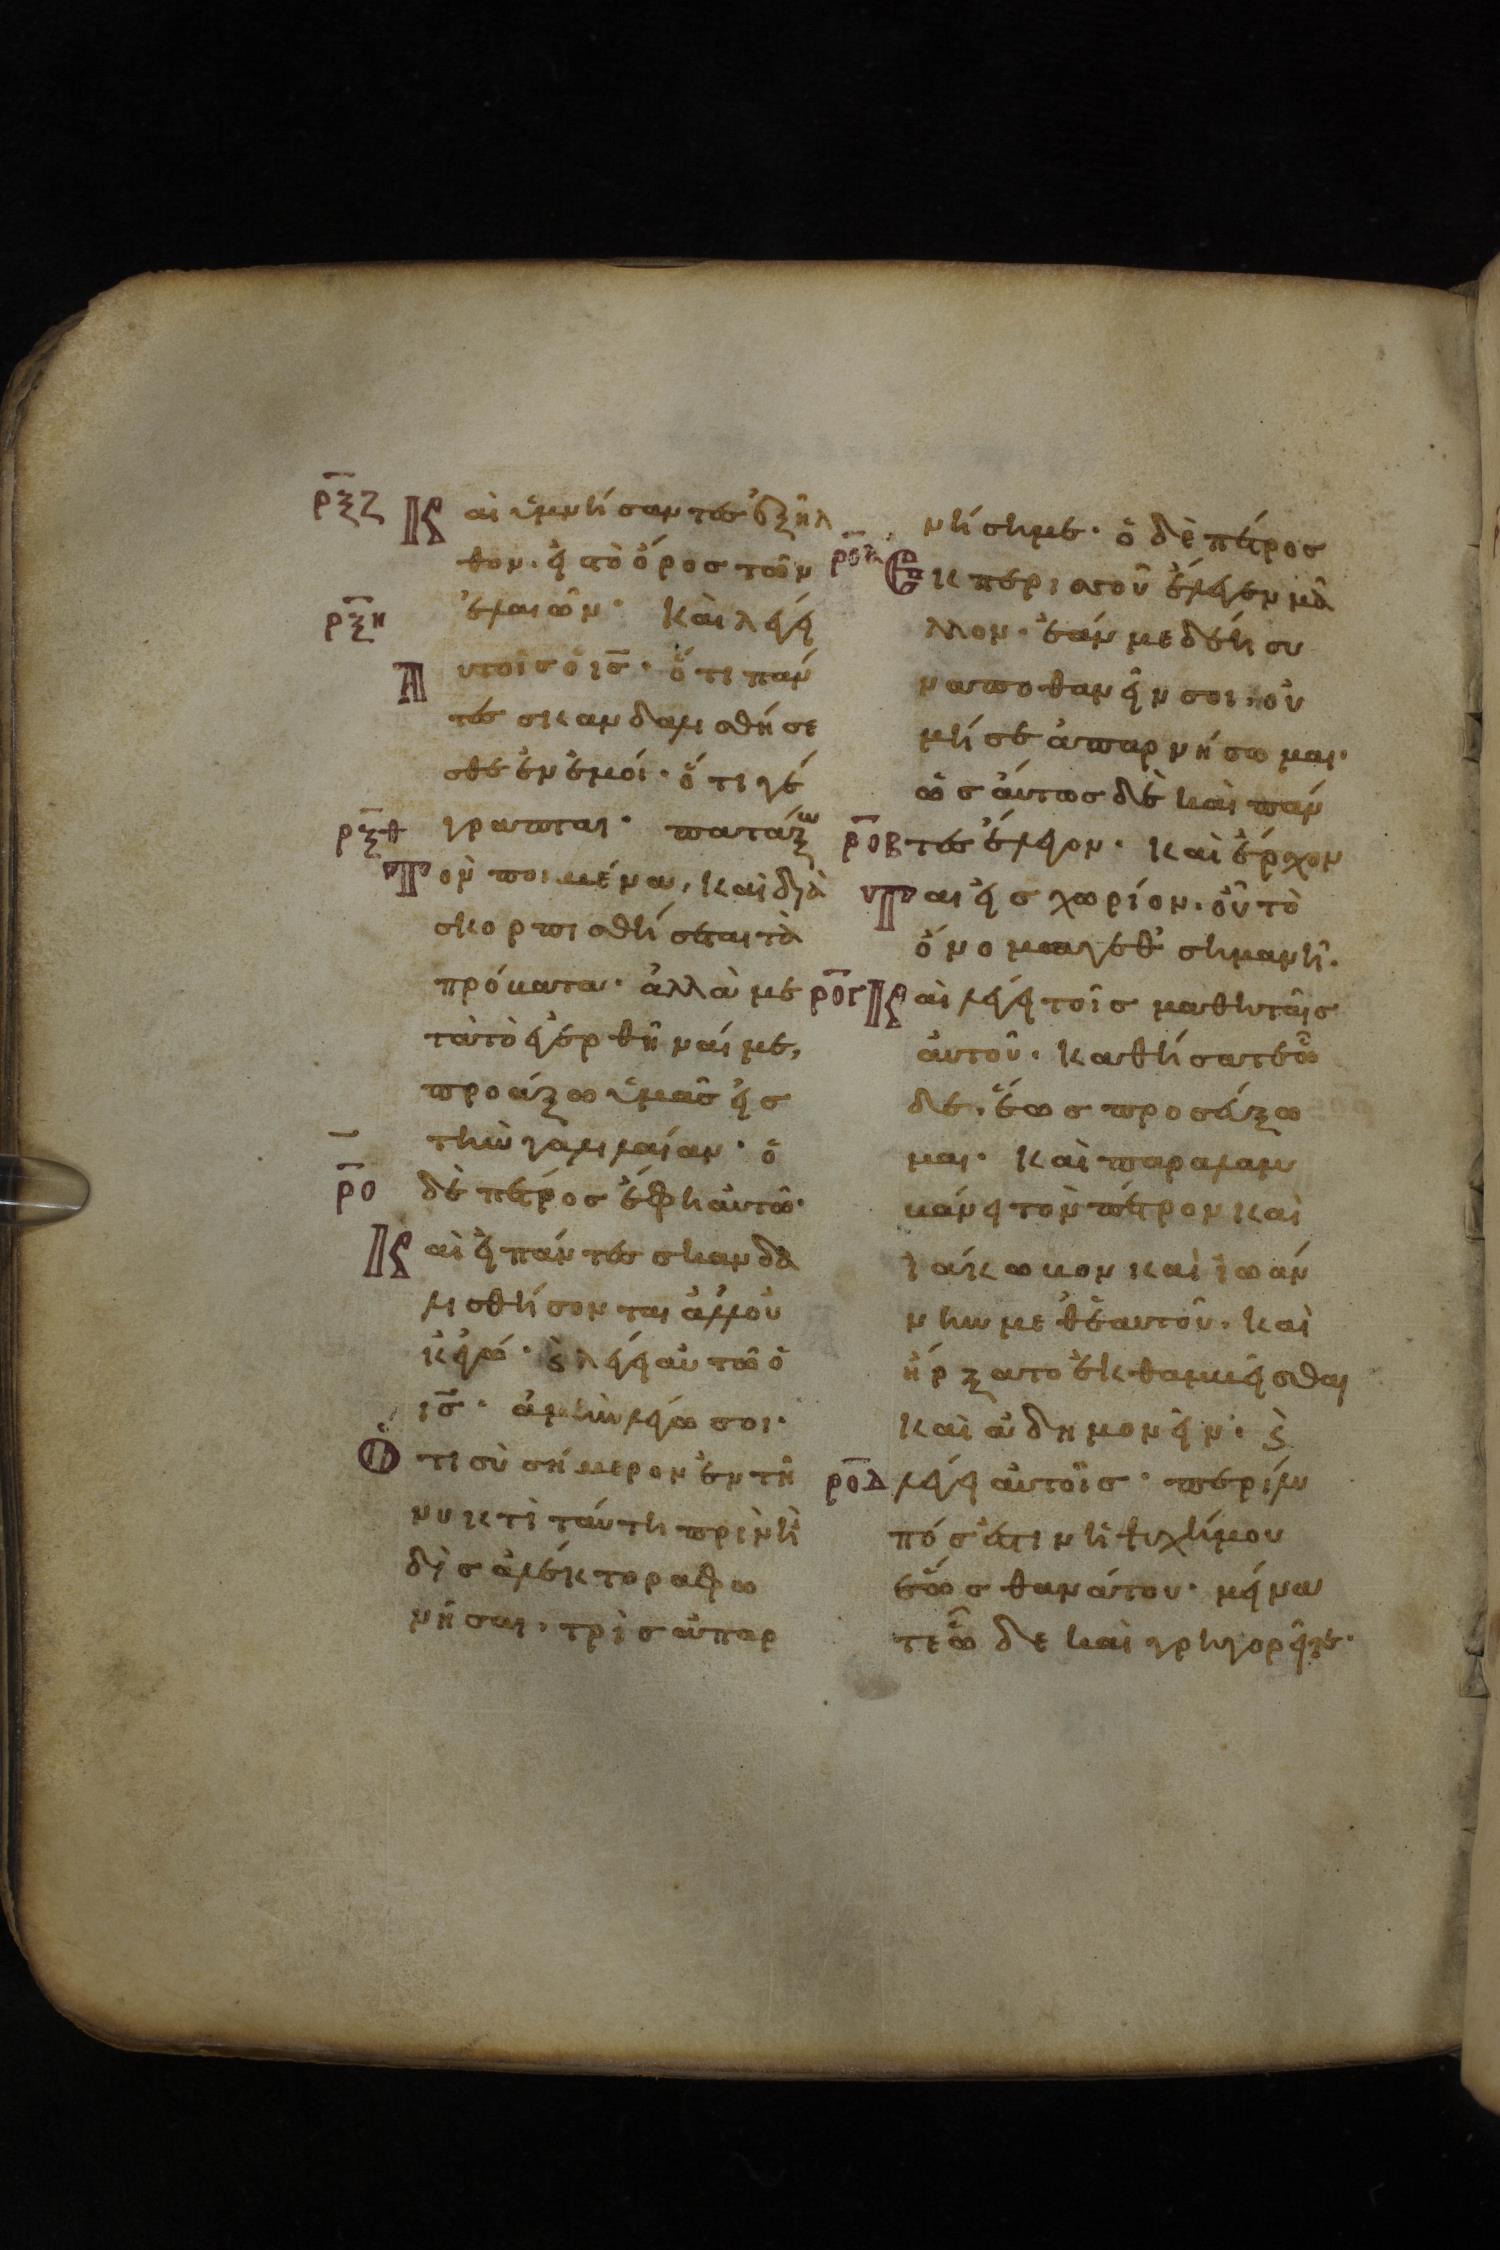 ρξζ Καὶ ὑμνήσαντες ἐξῆλ
θον. εἰ τὸ ὄρος τῶν
ρξη ἐλαιῶν· καὶ λέγει
Αυτοῖς ὁ ις̅· ὅτι πάν
τες σκανδαλισθήσε
σθε ἐν ἐμοί· ὅτι γέ
ρξθ γραπται· πατάξω
Τὸν ποιμένα, καὶ δια
σκορπισθήσεται τὰ
πρόβατα· ἀλλὰ με
τὰ τὸ ἐγερθῆναί με,
προάξω ὑμᾶς εἰς
τὴν γαλιλαίαν· ὁ
ρο δὲ πέτρος ἔφη αὐτῶ·
Καὶ εἰ πάντες σκανδα
λισθήσονται ἀλλ' οὐ
κ ἐγώ· ϗ λέγει αὐτῶ ὁ
ις̅· ἀμὴν λέγω σοι·
Ὅτι σὺ σήμερον ἐν τῆ
νυκτὶ ταύτη πρὶν ἢ
δὶς ἀλέκτορα φω
νῆσαι, τρὶς ἀπαρ
νήση με· ὁ δὲ πέτρος
ροα Εκ περισσοῦ ἔλεγεν μᾶ
λλον· ἐάν με δέη συ
ναποθανεῖν σοι, οὐ
μή σε ἀπαρνήσωμαι·
ὡσαύτως δὲ καὶ πάν
ροβ τες ἔλεγον· καὶ ἔρχον
Ται εἰς χωρίον. οὗ τὸ
ὄνομα γεθσημανῆ.
ρογ Καὶ λέγει τοῖς μαθηταῖς
αὐτοῦ· καθήσατε ὧ
δε. ἕως προσεύξω
μαι· καὶ παραλαμ
βάνει τὸν πέτρον καὶ
ἰάκωβον καὶ ἰωάν
νην μεθ' ἑαυτοῦ. καὶ
ἤρξατο ἐκθαμβεῖσθαι
καὶ ἀδημονεῖν. ϗ
ροδ λέγει αὐτοῖς· περίλυ
πός ἐστιν ἡ ψυχή μου
ἕως θανάτου· μείνα
τε ὧδε καὶ γρηγορεῖτε·